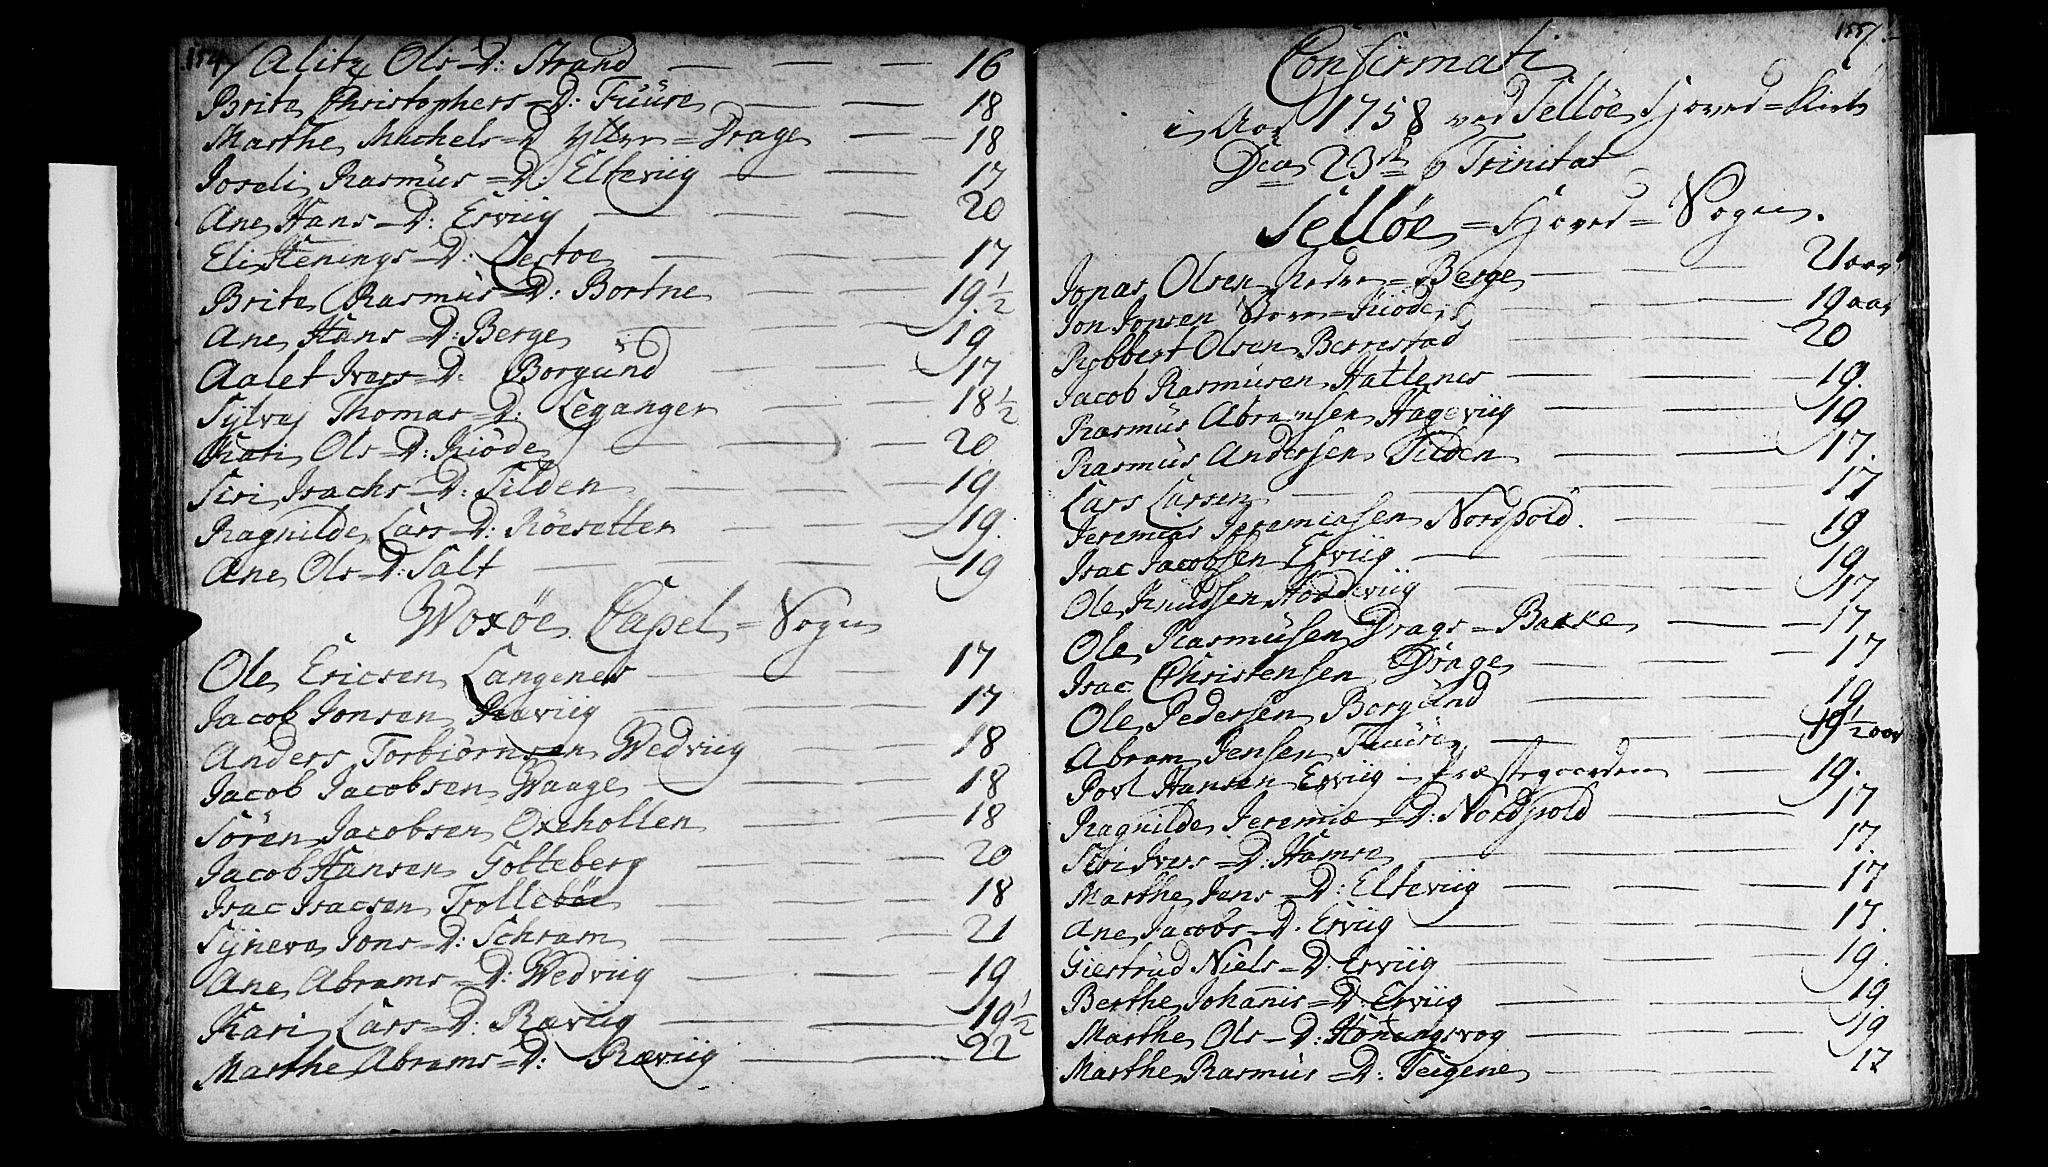 154
Alitz Ols=D: Strand 16
Brite Christophers=D: Fuure 18
Marthe Michels=D Ytter=Drage 18
Joseli Rasmus=D: Eltevüg 17
Ane Hans=D: Ervüg 20
Eli Henings=D: 17
Brite Rasmus=D: Bortne 19 1/2
Ane Hans=D: Berge 19
Aalet Ivers=D: Borgünd 17
Sÿlvaj Thomas=D: Leganger 18 1/2
Kari Ols=D: Kiöde 20
Siri Isachs=D: Silden 19
Ragnilde Lars=D: Röesetter 19
Ane Ols=D: Salt 19
Woxöe Capel=Sogn
Ole Ericsen Langenes 17
Jacob Jonsen Rævüg 17
Anders Torbiörnsen Wedvüg 18
Jacob Jacobsen Waage 18
Sören Jacobsen Oxehollen 18
Jacob Hansen Totteberg 20
Isac Isacsen Trolleböe 18
Sÿneva Jons=D: Schram 21
Ane Abrams=D: Wedvüg 19
Kari Lars=D: Rævüg 19 1/2
Marthe Abrams=D: Rævüg 22
155
Confirmati
i Aar 1758 ved Selløe Hoved=Kirke
Dca 23de p Trinitat
Selløe=Hoved=Sogn.
Jonas Olsen Nedre=Berge 21 aar
Jon Jonsen Store=Kiöde 19 aar
Robbert Olsen Berrestad 20
Jacob Rasmusen Hatlenes 19.
Rasmus Abramsen Hagevüg 19
Rasmus Andersen Silden 17.
Lars Larsen 17
Jeremias Jeremiasen Nordpold. 19
Isac Jacobsen Ervüg 19
Ole Knudsen Hoddevüg 17
Ole Rasmusen Drags=Bakke 17
Isac Christensen Drage 17
Ole Pedersen Borgünd 19
Abram Jensen Fuure 19 1/2 aar
Povl Hansen Ervüg i Præstegaarden 19.
Ragnilde Jeremiæ=D: Nordpold 17
Siri Ivers=D: Hamre 17.
Marthe Jens=D: Eltevüg 17
Ane Jacobs=D. Ervüg 17.
Giertrüd Niels=D: Ervüg 19.
Berthe Johannis=D: Ervüg 19
Marthe Ols=D: Honingsvog 19
Marthe Rasmus=D: Teigene 17